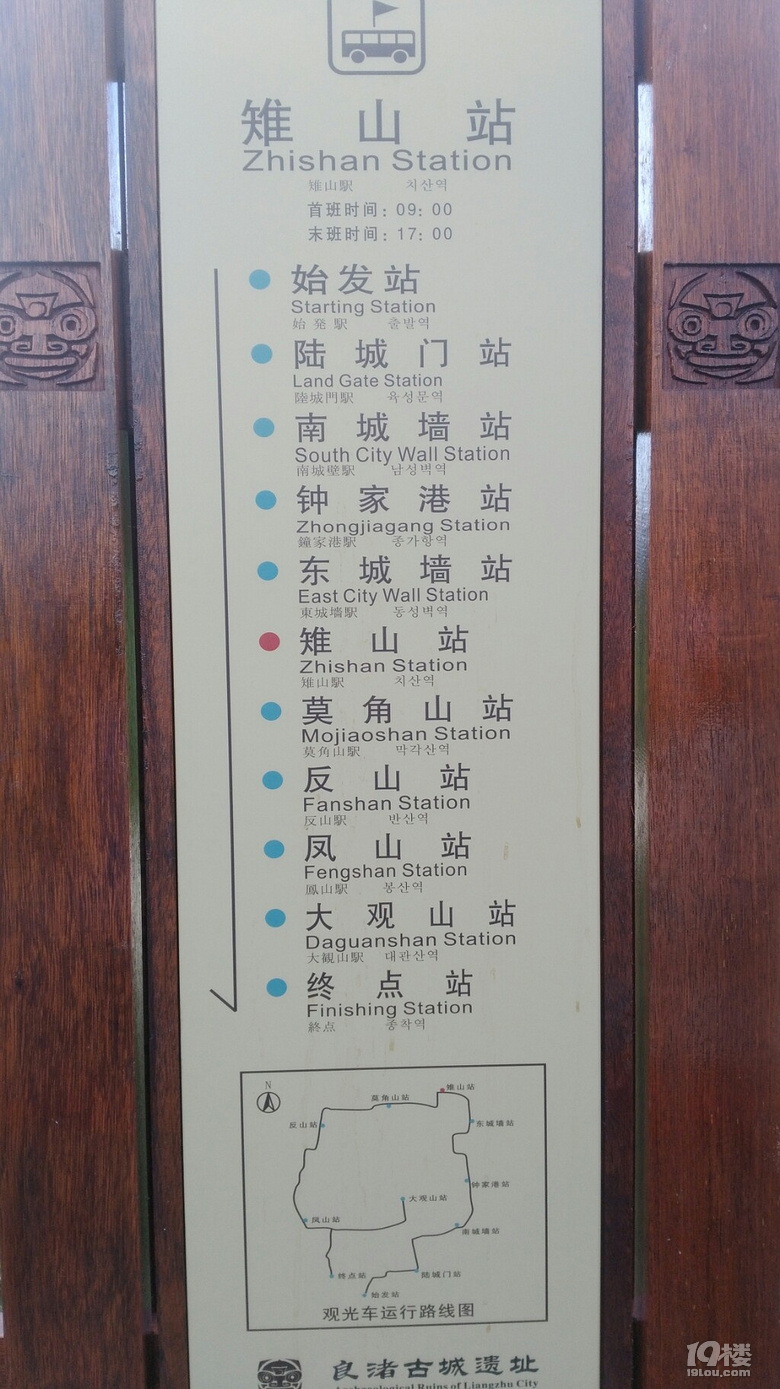 雉山站
Zhishan Station
雉山駅 치산역
首班时间：09：00
末班时间：17：00
始发站
Starting Station
始発駅 출발역
陆城门站
Land Gate Station
陸城門駅 육성문역
南城墙站
South City Wall Station
南城壁駅 남성벽역
钟家港站
Zhongjiagang Station
鐘家港駅 종가항역
东城墙站
East City Wall Station
東城墻駅 동성벽역
雉山站
Zhishan Station
雉山駅 치산역
莫角山站
Mojiaoshan Station
莫角山駅 막각산역
反山站
Fanshan Station
反山駅 반산역
凤山站
Fengshan Station
鳳山駅 봉산역
大观山站
Daguanshan Station
大観山駅 대관산역
终点站
Finishing Station
終点 종착역
N
雉山站
莫角山站
反山站
东城墙站
钟家港站
大观山站
凤山站
南城墙站
终点站
陆城门站
始发站
观光车运行路线图
良渚古城遗址
Archaeological Ruins of Liangzhu City
19楼
19lou.com